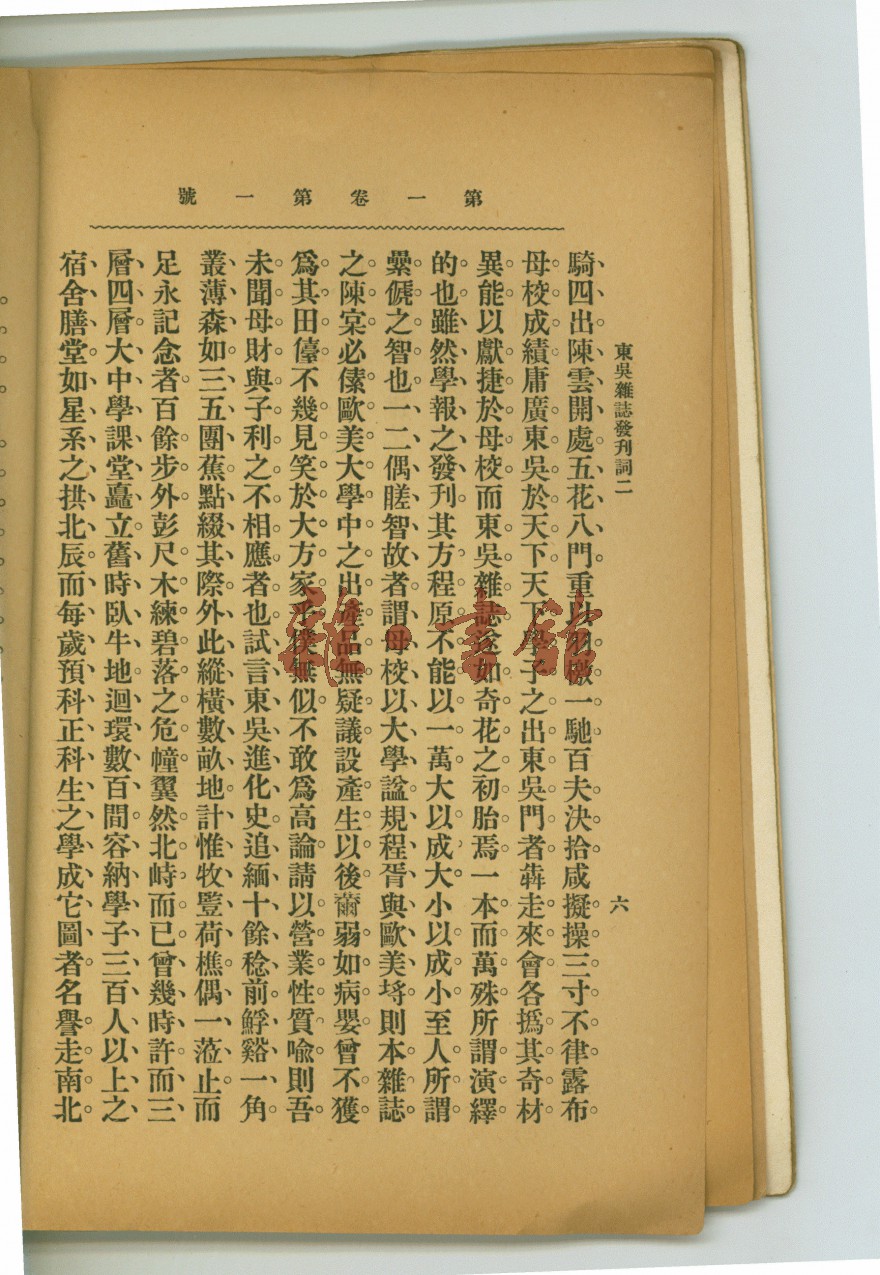 第一卷第一號
東吳雜誌發刊詞二
六
騎四出陳雲開處五花八門重以羽檄一馳百夫決拾咸擬操三寸不律露布
母校成績庸廣東吳於天下天下學子之出東吳門者犇走來會各撝其奇材
異能以獻捷於母校而東吳雜誌遂如奇花之初胎焉一本而萬殊所謂演繹
的也雖然學報之發刊其方程原不能以一萬大以成大小以成小至人所謂
纍俿之智也一二偶瞇智故者謂母校以大學諡規程胥與歐美埒則本雜誌
之陳寀必傃歐美大學中之出產品無疑議設產生以後薾弱如病嬰曾不獲
爲其田儓不幾見笑於大方家乎僕無似不敢爲高論請以營業性質喩則吾
未聞母財與子利之不相應者也試言東吳進化史追緬十餘稔前鮃谿一角
叢薄森如三五團蕉點綴其際外此縱橫數畝地計惟牧豎荷樵偶一蒞止而
足永記念者百餘步外彭尺木練碧落之危幢翼然北峙而已曾幾時許而三
層四層大中學課堂矗立舊時臥牛地迴環數百間容納學子三百人以上之
宿舍膳堂如星系之拱北辰而每歲預科正科生之學成它圖者名譽走南北
雅書館